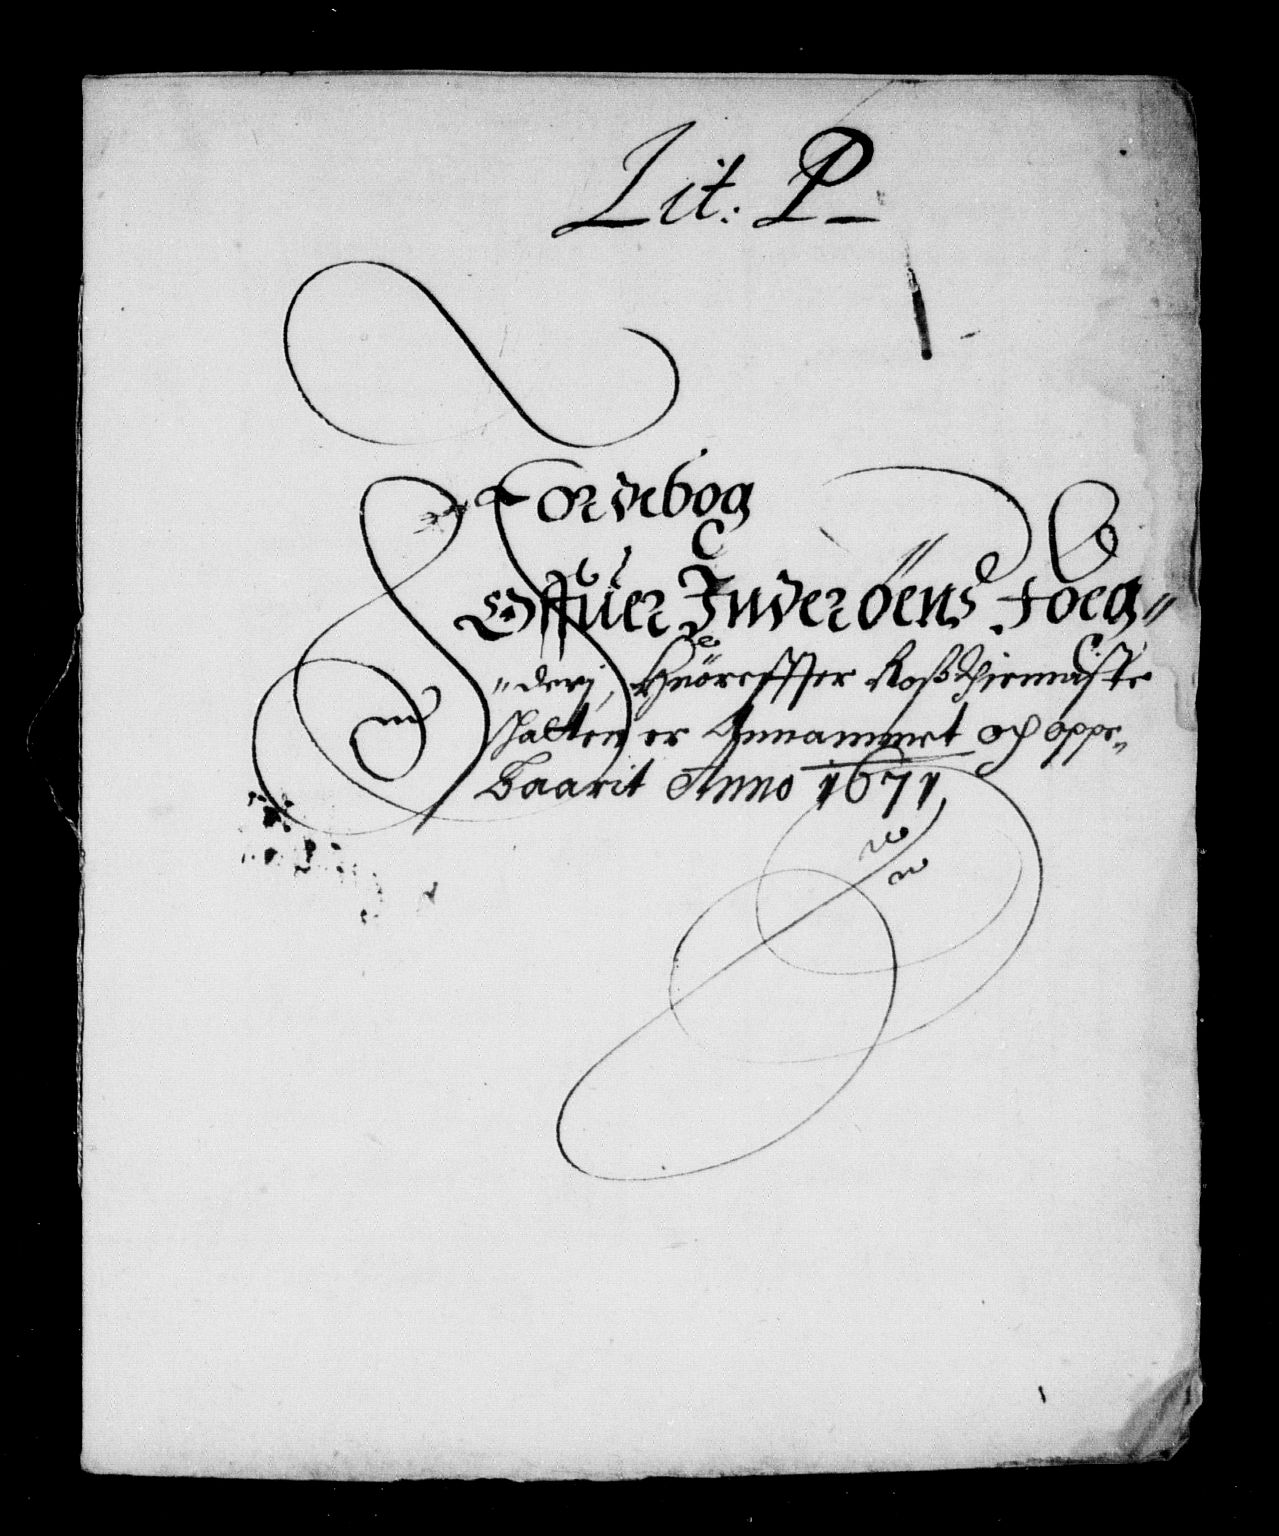 Lit: P
Jordebog
Offuer Inderöens Foeg-
derj, Huöreffter Roßthiennéste
skatten er Innammet och oppe-
baarit Anno 1671